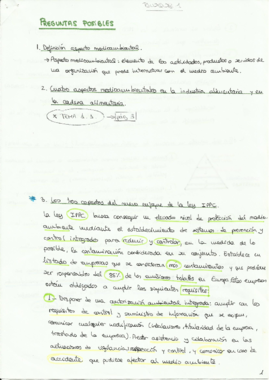 PREGUNTAS POSIBLES
1. Definición aspecto medioambiental.
→ Aspecto medioambiental: elemento de las actividades, productos o servicios de
una organización que puede interactuar con el medio ambiente.
2. Cuatro aspectos medioambientales en la industria alimentaria y en
la cadena alimentaria.
* TEMA
→ pág. 3
* 3. Los tres aspectos del nuevo enfoque de la ley IPPC.
La ley IPPC busca conseguir un elevado nivel de protección del medio
ambiente mediante el establecimiento de sistemas de prevención y
control integrados para reducir y controlar, en la medida de lo
posible, la contaminación considerada en su conjunto. Establece un
listado de empresas que se consideran más contaminantes y que podrían
ser responsables del
de las emisiones totales en Europa. Esta empresa
están obligadas a cumplir los siguientes requisitos:
1- Disponer de una autorización ambiental integrada: cumplir con los
requisitos de control y suministro de información que se exigen,
comunicar cualquier modificación (instalaciones, titularidad de la empresa,
de la empresa). Prestar asistencia y colaboración en las
actuaciones de vigilancia, inspección y control, y comunicar en caso de
accidente que pudiese afectar al medio ambiente.